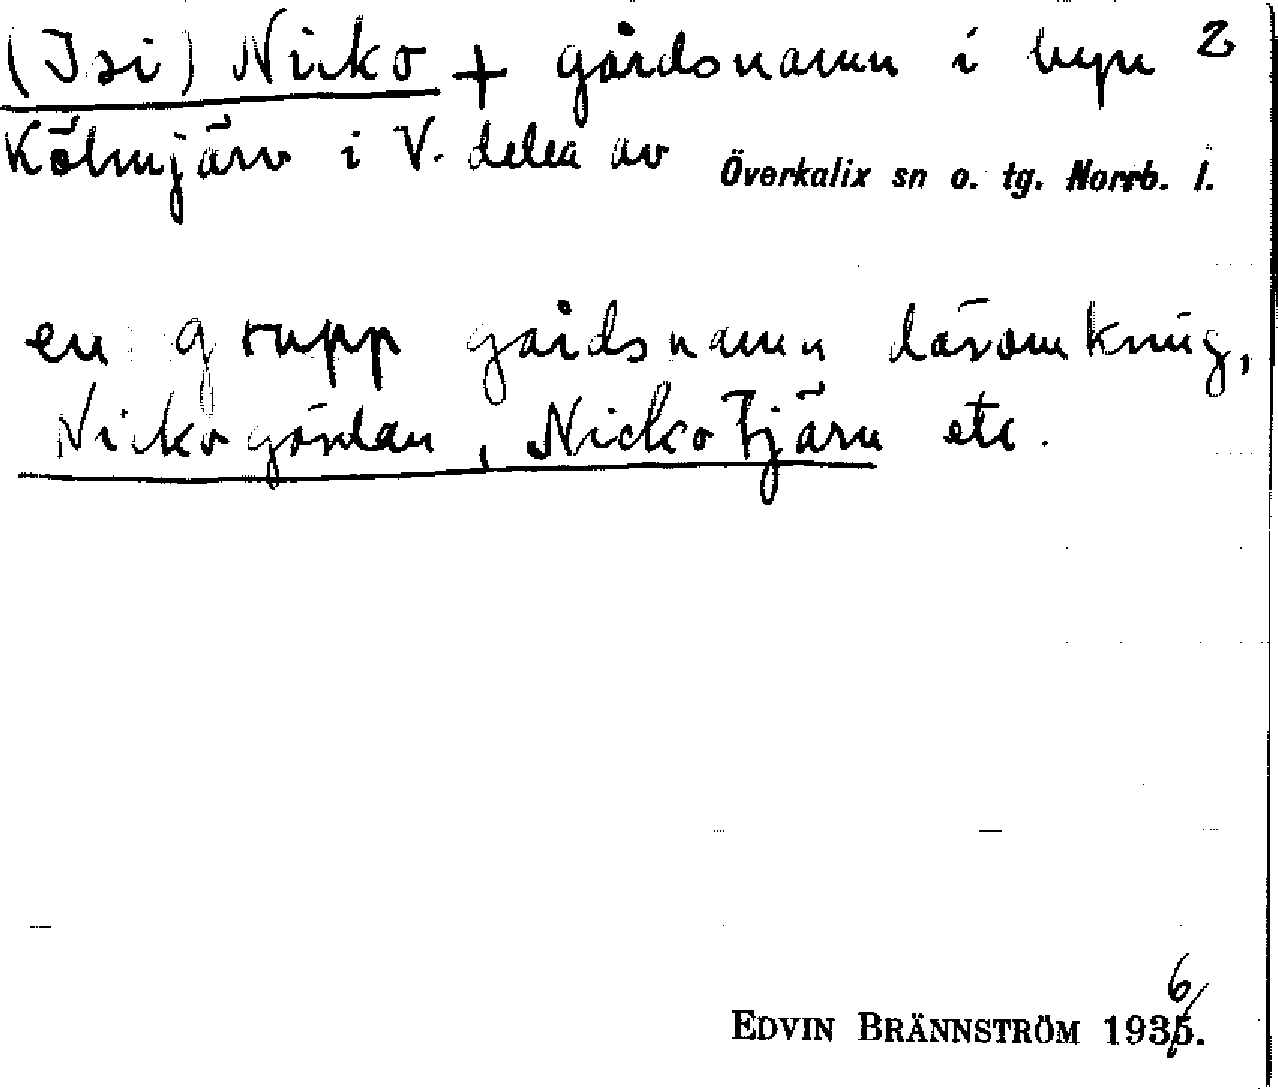 (Isi) Nicko + gårdsnamn i byn 2
Kölmjärv i V. delen av Överkalix sn o. tg. Norrb. l.
en grupp gårdsnamn däromkring,
Nickogärdan, Nickotjärn etc.
EDVIN BRÄNNSTRÖM 1936.